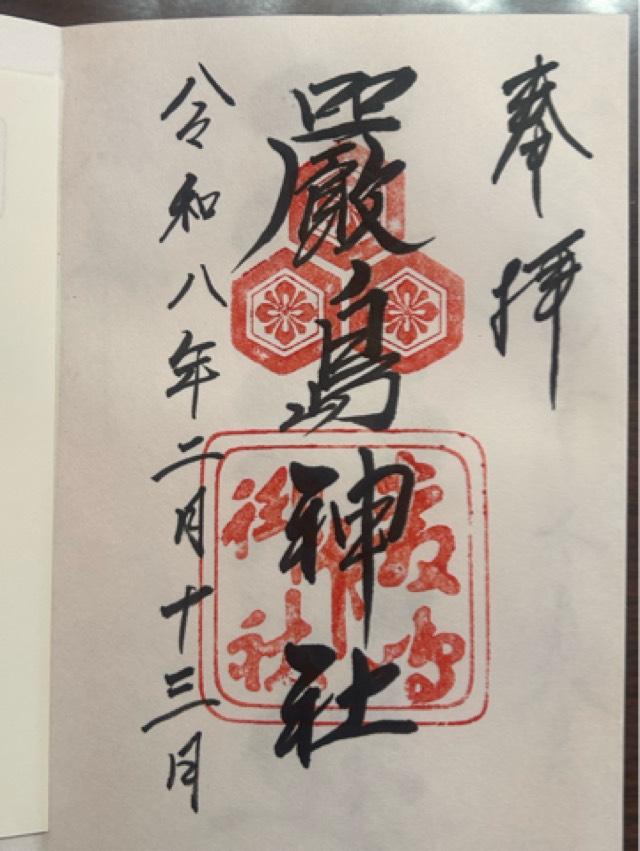 奉拝
嚴島神社
令和八年二月十三日